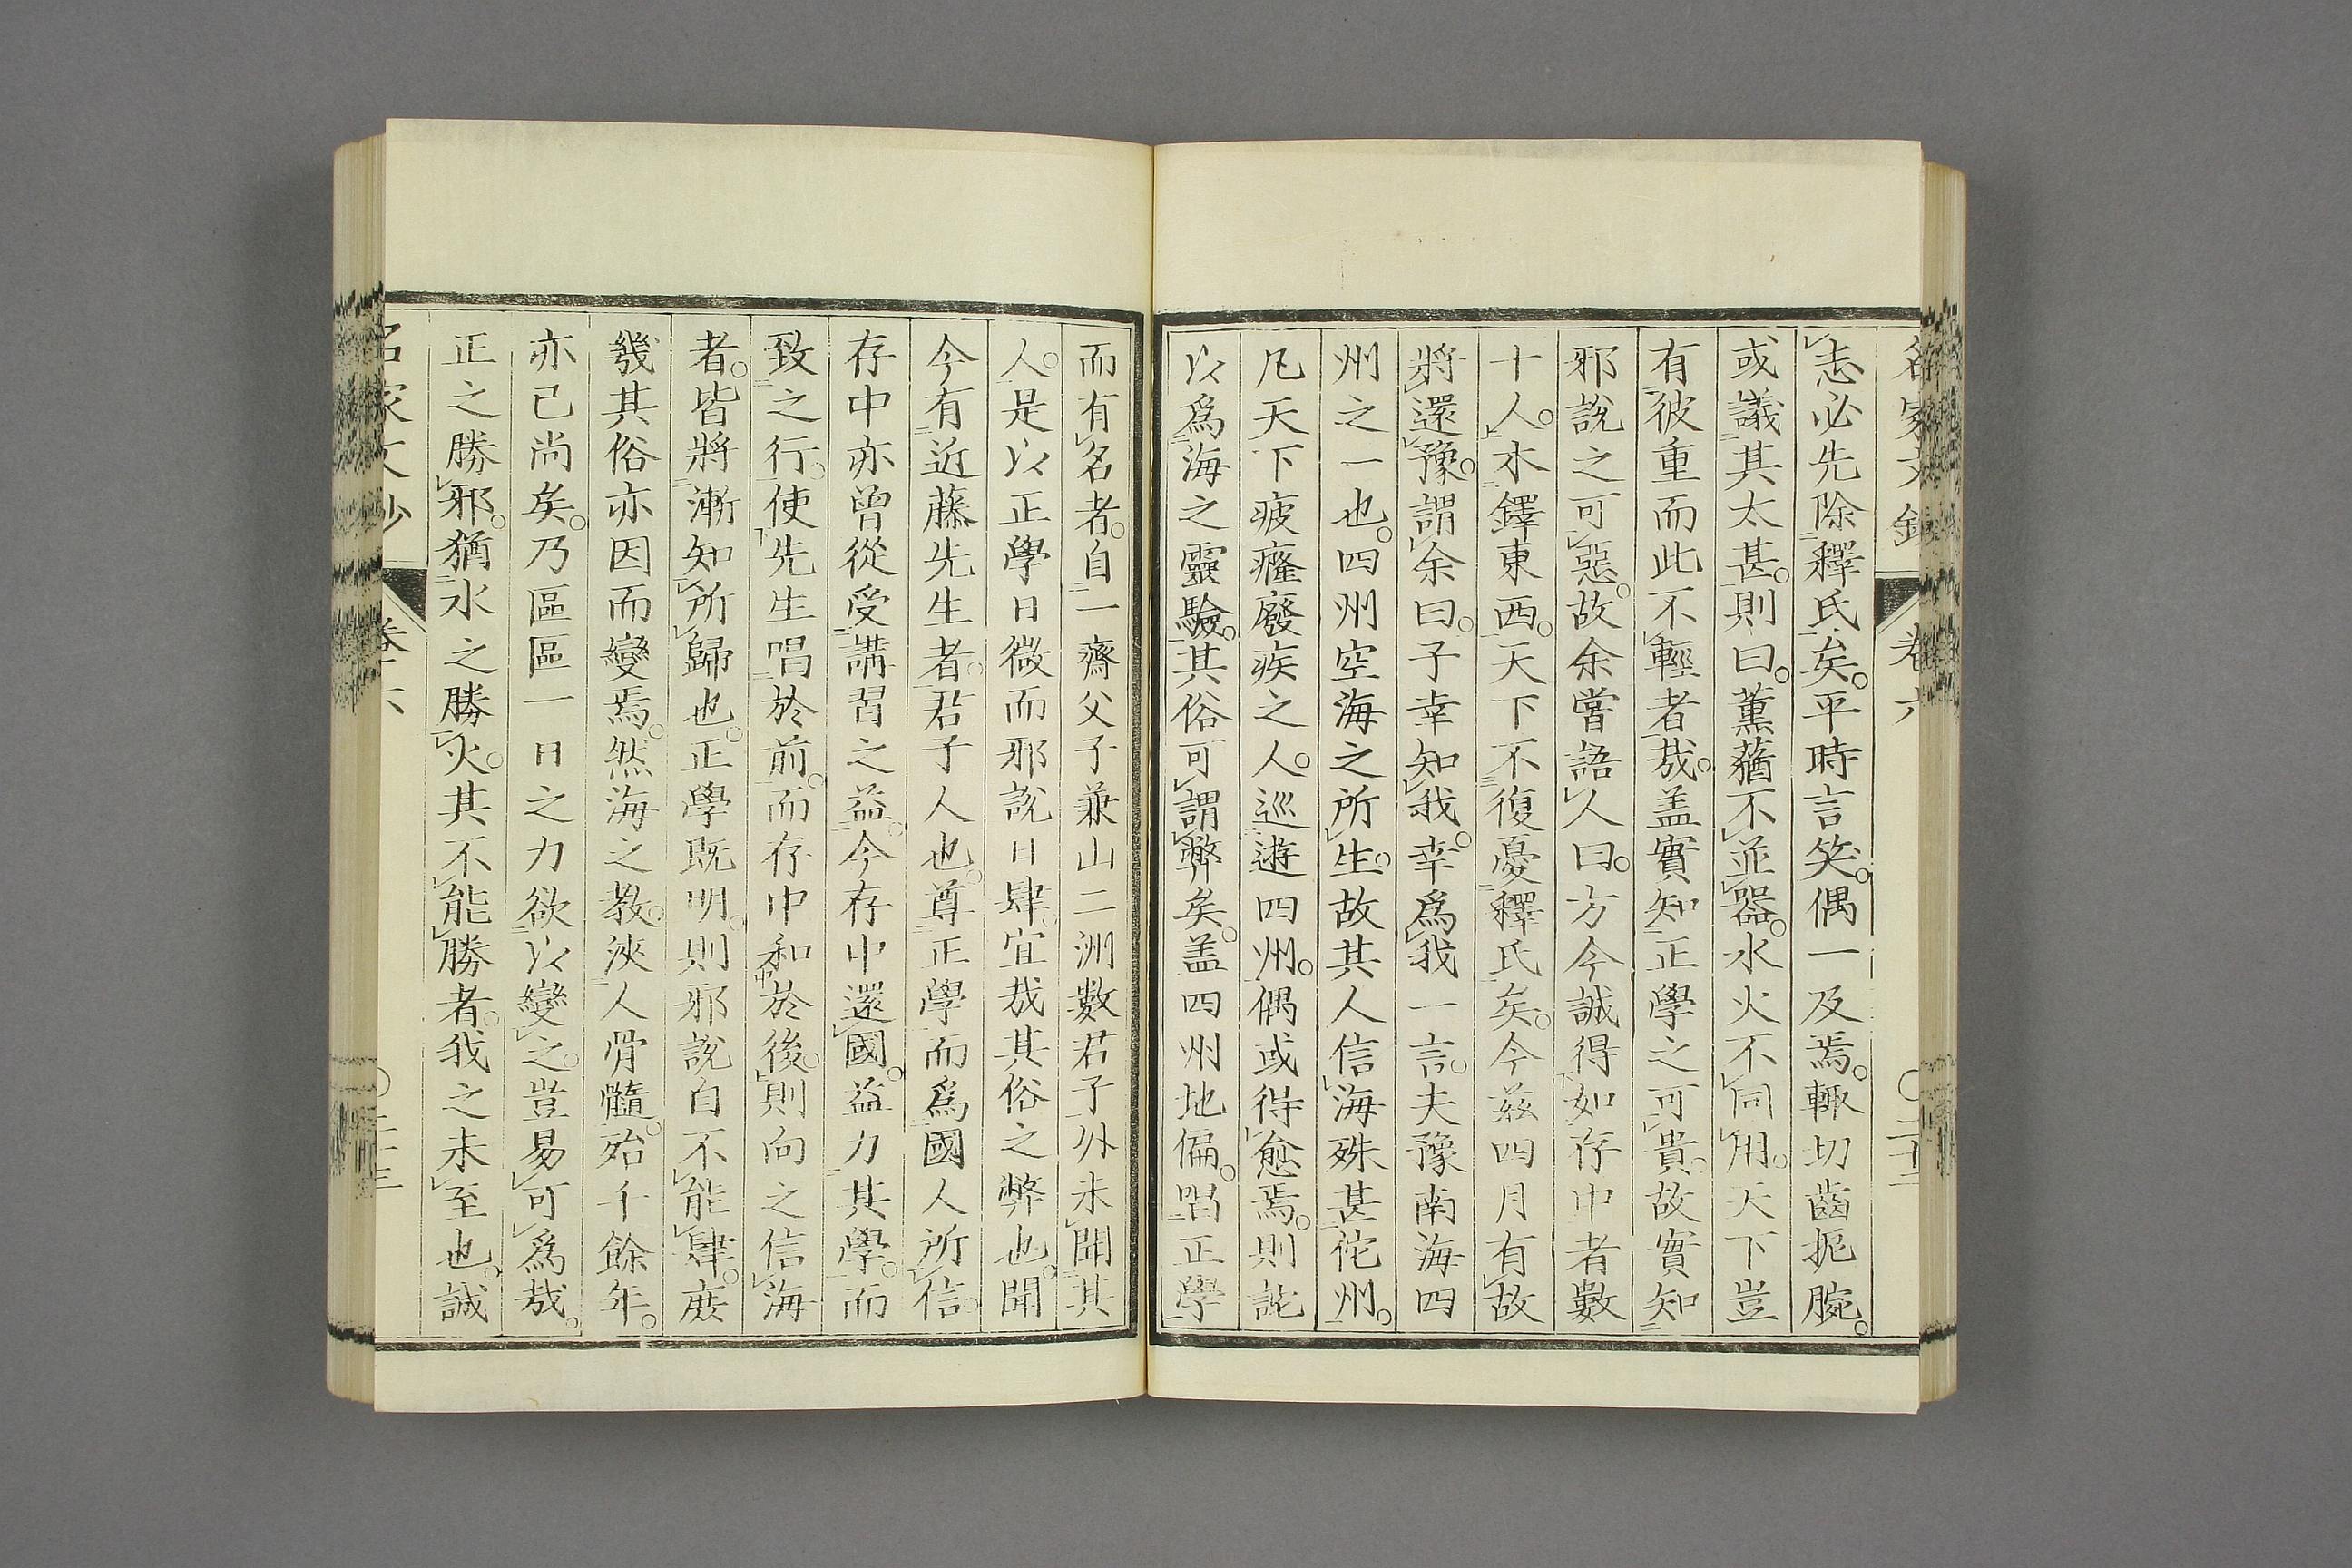 志必先除釋氏矣。平時言笑。偶一及焉。輙切齒扼腕。
或議其太甚。則曰。薰蕕不並器。水火不同用。天下豈
有彼重而此不輕者哉。盖實知正學之可貴。故實知
邪說之可惡。故余嘗語人曰。方今誠得如存中者數
十人。木鐸東西。天下不復憂釋氏矣。今茲四月有故
將還豫。謂余曰。子幸知我。幸爲我一言。夫豫南海四
州之一也。四州空海之所生。故其人信海殊甚佗州。
凡天下疲癃廢疾之人。巡遊四州。偶或得愈焉。則詫
以爲海之靈驗。其俗可謂弊矣。盖四州地偏。唱正學
而有名者。自一齋父子兼山二洲數君子外未聞其
人。是以正學日微而邪說日肆。宜哉其俗之弊也。聞
今有近藤先生者。君子人也。尊正學而爲國人所信。
存中亦曾從受講習之益。今存中還國。益力其學。而
致之行。使先生唱於前。而存中和於後。則向之信海
者。皆將漸知所歸也。正學既明。則邪說自不能肆。庶
幾其俗亦因而變焉。然海之教。浹人骨髓。殆千餘年。
亦已尚矣。乃區區一日之力欲以變之。豈易可爲哉。
正之勝邪。猶水之勝火。其不能勝者。我之未至也。誠